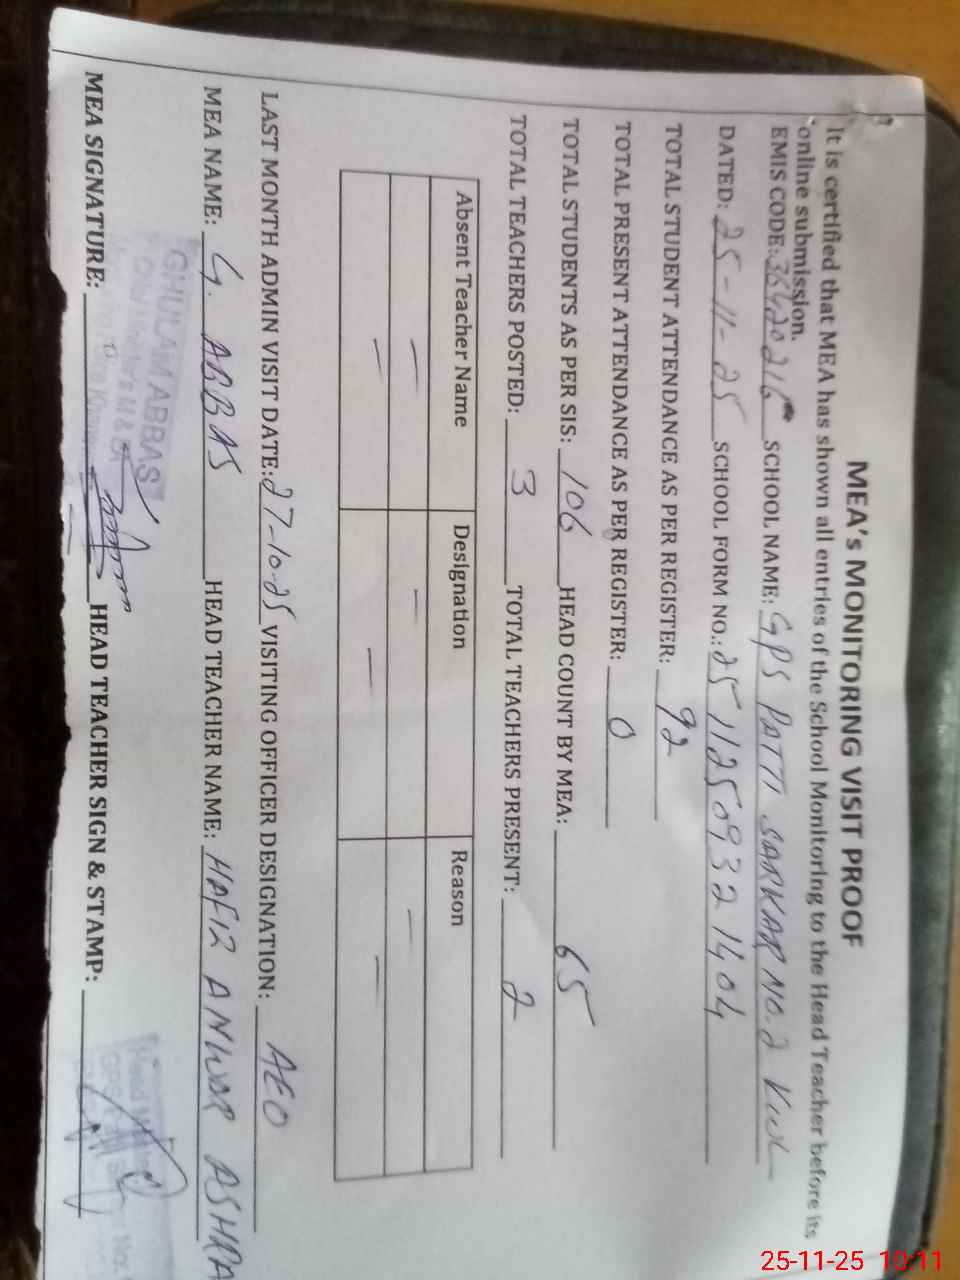 MEA's MONITORING VISIT PROOF
It is certified that MEA has shown all entries of the School Monitoring to the Head Teacher before its
online submission.
EMIS CODE: 36420216 SCHOOL NAME: GPS PATTI SARKAR NO.2
DATED: 25-11-25 SCHOOL FORM NO.: 25112509321404
TOTAL STUDENT ATTENDANCE AS PER REGISTER: 92
TOTAL PRESENT ATTENDANCE AS PER REGISTER: 0
TOTAL STUDENTS AS PER SIS: 106 HEAD COUNT BY MEA: 65
TOTAL TEACHERS POSTED: 3 TOTAL TEACHERS PRESENT: 2
Absent Teacher Name Designation Reason
— — —
— — —
LAST MONTH ADMIN VISIT DATE: 27-10-25 VISITING OFFICER DESIGNATION: AEO
MEA NAME: G. ABBAS HEAD TEACHER NAME: HAFIZ ANWAR ASHRA
GHULAM ABBAS
MEA SIGNATURE: HEAD TEACHER SIGN & STAMP:
25-11-25 10:11